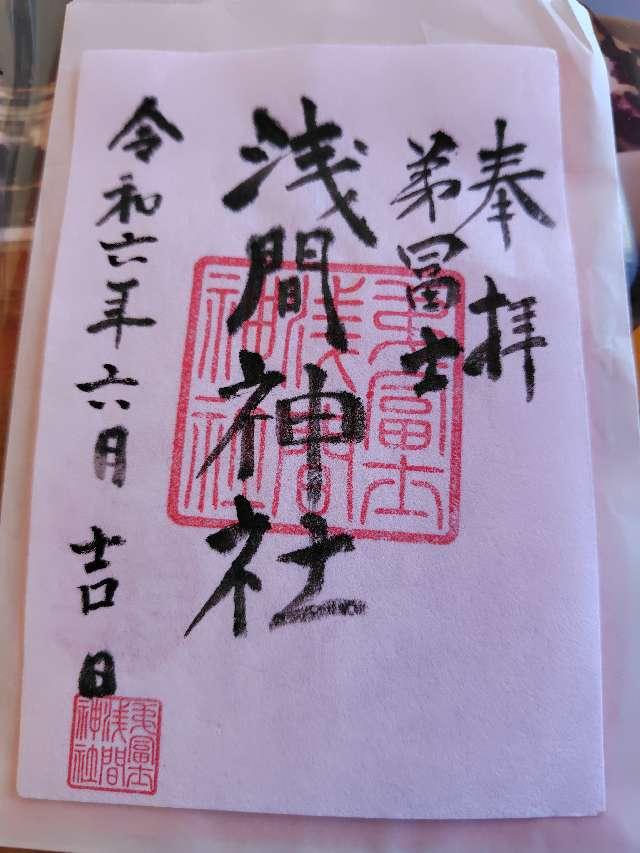 奉拝
弟冨士
浅間神社
令和六年六月吉日
弟冨士
浅間
神社
弟冨士
浅間
神社